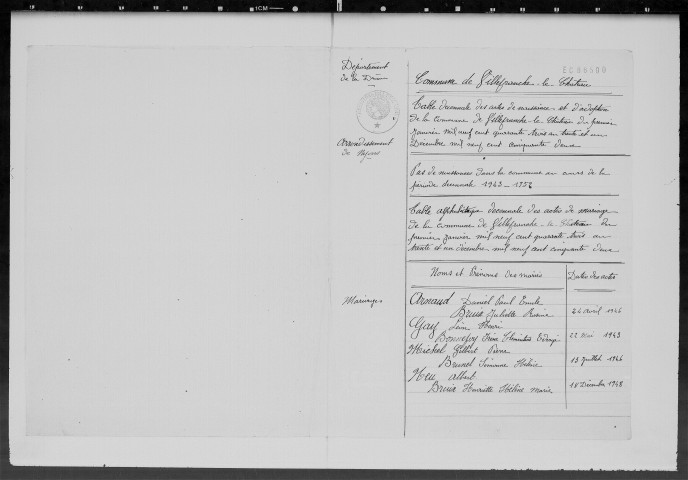 1CM
EC88500
Département
de la Drôme
Arrondissement
de Nyons
Commune de Villefranche-le-Château
Table décennale des actes de naissance et d'adoption
de la commune de Villefranche-le-Château du premier
janvier mil neuf cent quarante trois au trente et un
Décembre mil neuf cent cinquante deux
Pas de naissances dans la commune au cours de la
période décennale 1943-1952
Table alphabétique décennale des actes de mariage
de la commune de Villefranche-le-Château du
premier janvier mil neuf cent quarante trois au
trente et un décembre mil neuf cent cinquante deux
Noms et Prénoms des mariés
Dates des actes
Mariages
Arnaud Daniel Paul Emile
Bruis Juliette 24 avril 1946
Gay Henri
Bonnefoy 22 mai 1943
Michel Gilbert Pierre
Brunel Simonne Hélène 13 juillet 1946
Albert
Henriette Hélène Marie 18 Décembre 1948